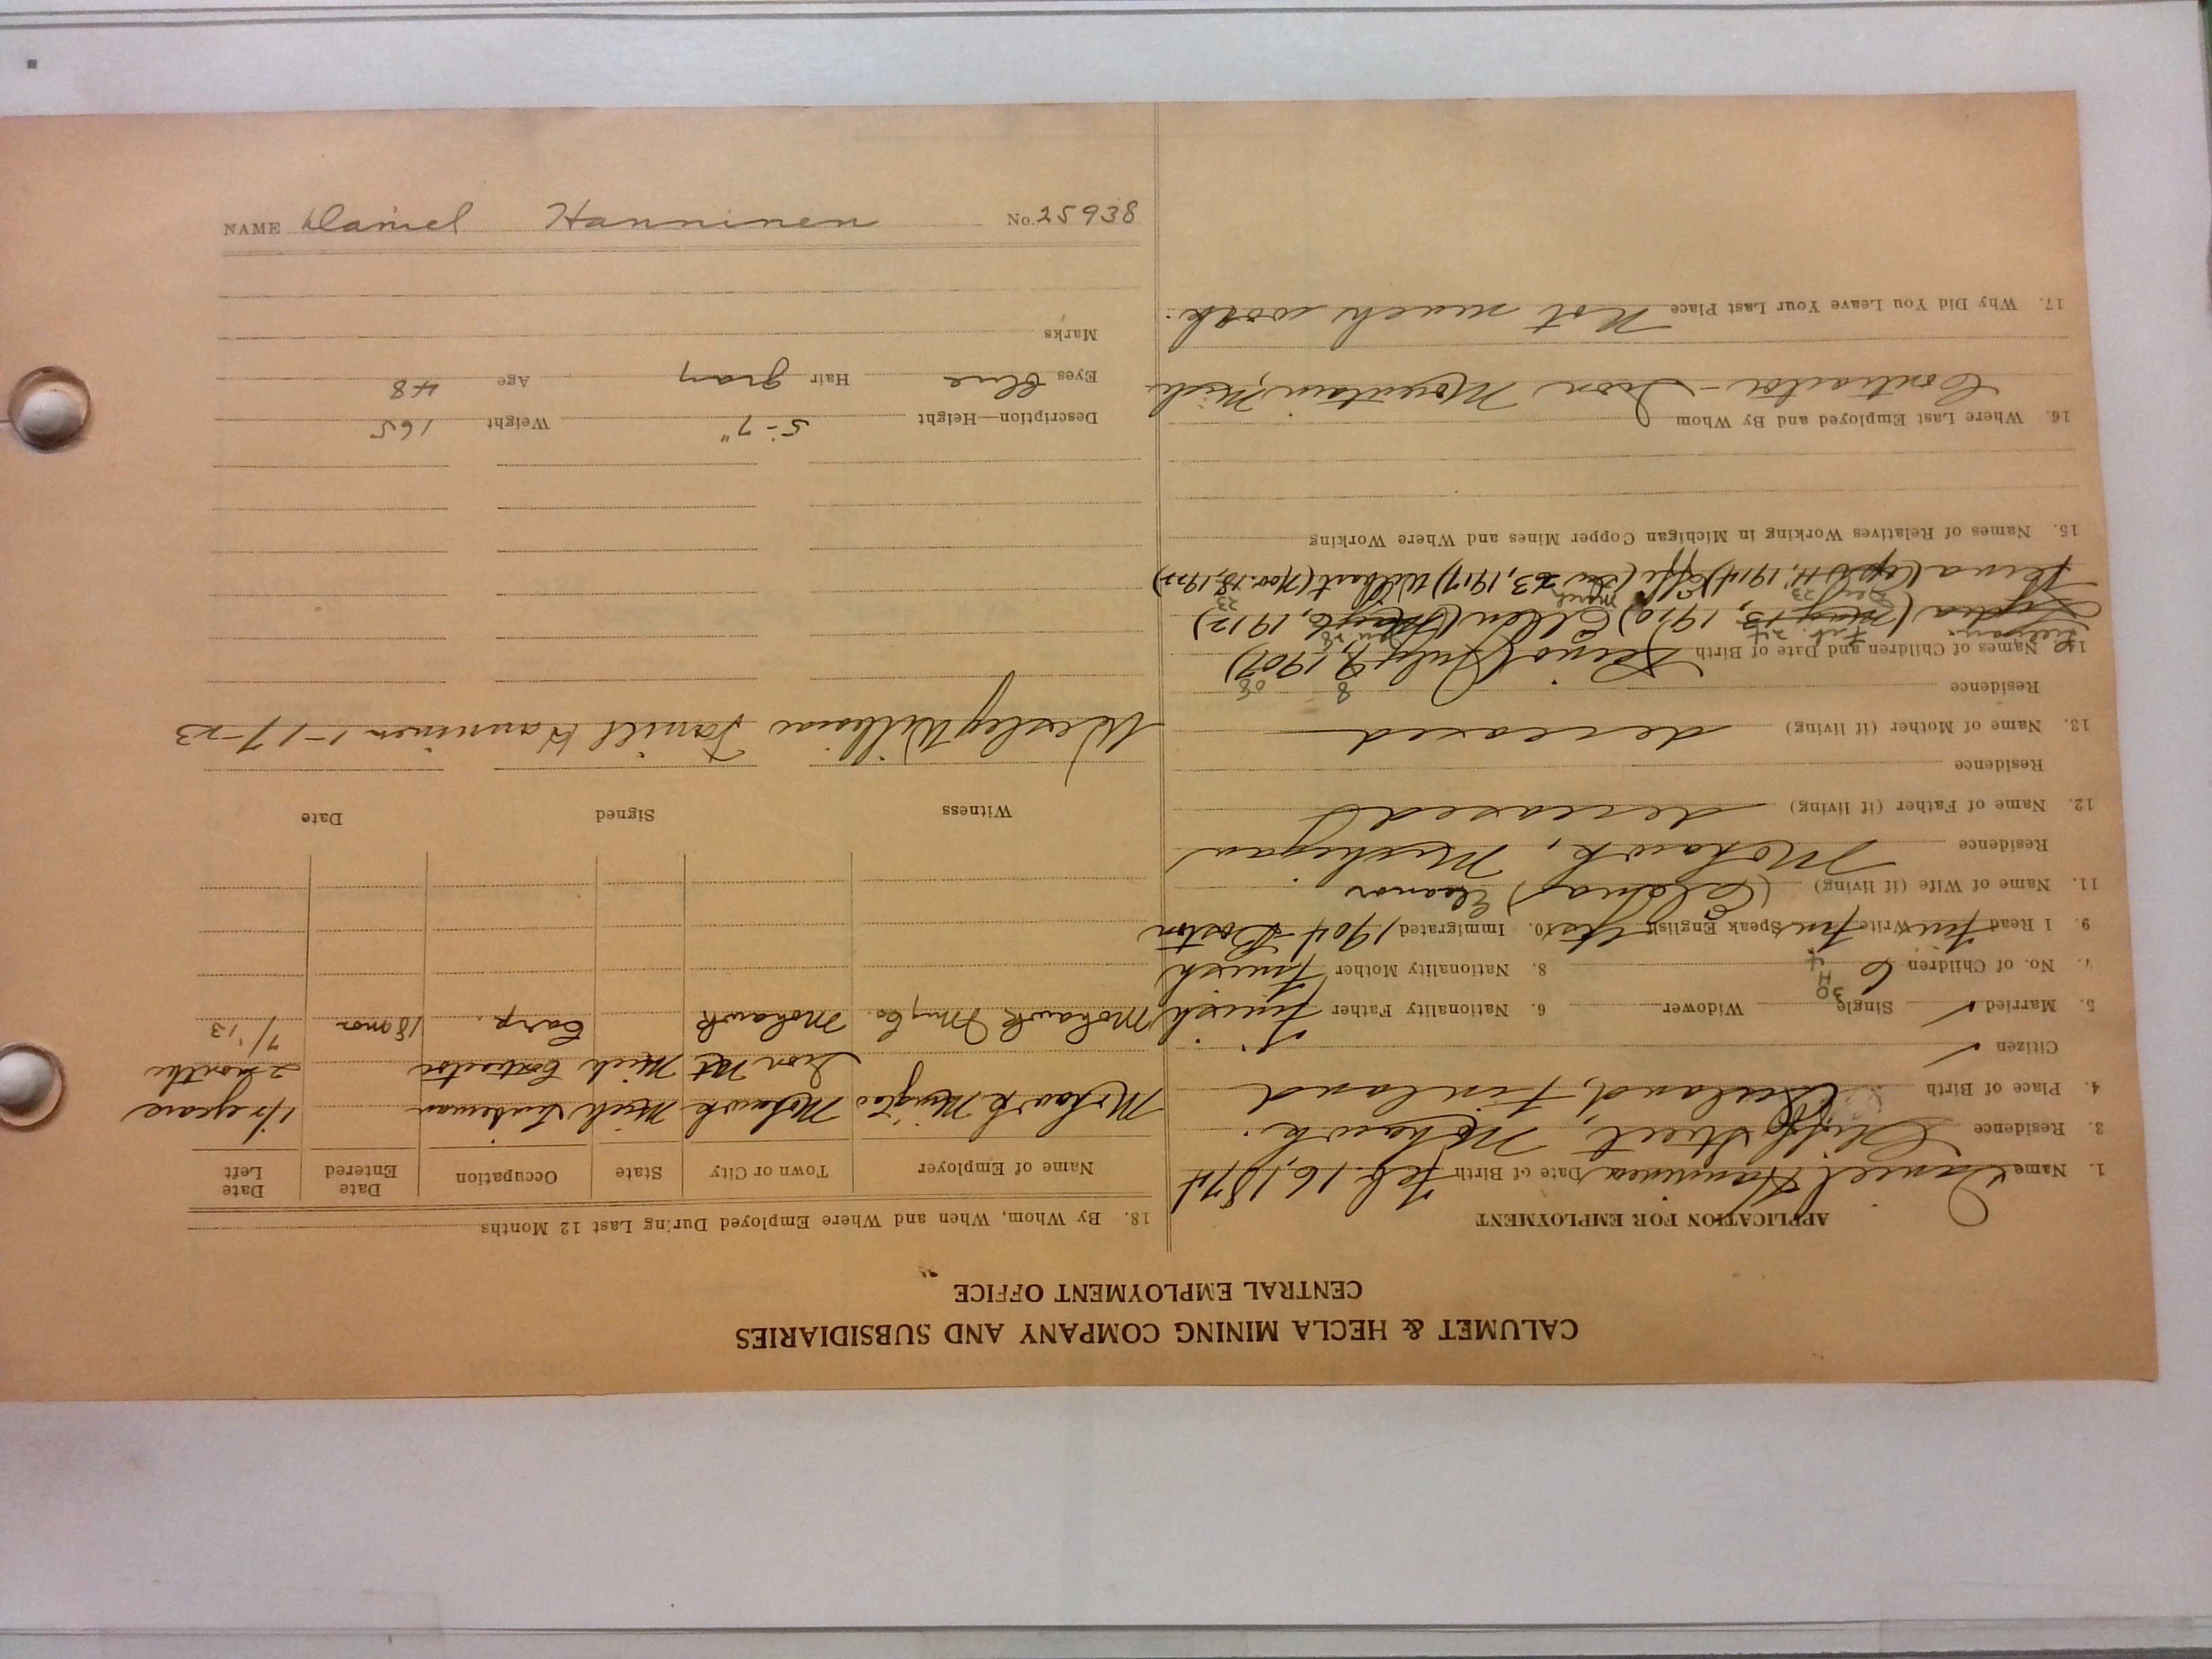 CALUMET & HECLA MINING COMPANY AND SUBSIDIARIES
CENTRAL EMPLOYMENT OFFICE
APPLICATION FOR EMPLOYMENT
1. Name Daniel Hanninen Date of Birth Feb. 16, 1874
3. Residence Cliff Street, Mohawk.
4. Place of Birth Finland
Citizen ✓
5. Married ✓ Single Widower 6. Nationality Father Finish
30
H
7. No. of Children 6 8. Nationality Mother Finish
4
9. I Read Finn Write Finn Speak English Yes 10. Immigrated 1904 Boston
11. Name of Wife (if living) Eleanor
Residence Mohawk, Michigan
12. Name of Father (if living) deceased
Residence
13. Name of Mother (if living) deceased
Residence
8 08
14. Names of Children and Date of Birth (July 9, 1907)
Feb. 24 Jan. 28
Lydia (May 13, 1910) Ellen (May 6, 1912)
23 March 23
1914) Effie (Dec 23, 1917) Wilbart (Nov. 18, 1922)
15. Names of Relatives Working in Michigan Copper Mines and Where Working
16. Where Last Employed and By Whom
Contractor - Iron Mountain, Mich.
17. Why Did You Leave Your Last Place Not much work.
18. By Whom, When and Where Employed During Last 12 Months
Name of Employer Town or City State Occupation Date Entered Date Left
Mohawk Mng Co Mohawk Mich 1½ years
Iron Mt Mich Contractor 2 months
Mohawk Mng Co. Mohawk Carp. 18 mos 7/'13
Witness Signed Date
Wesley Williams Daniel Hanninen 1-17-23
Description—Height 5-7" Weight 165
Eyes blue Hair gray Age 48
Marks
NAME Daniel Hanninen No. 25938